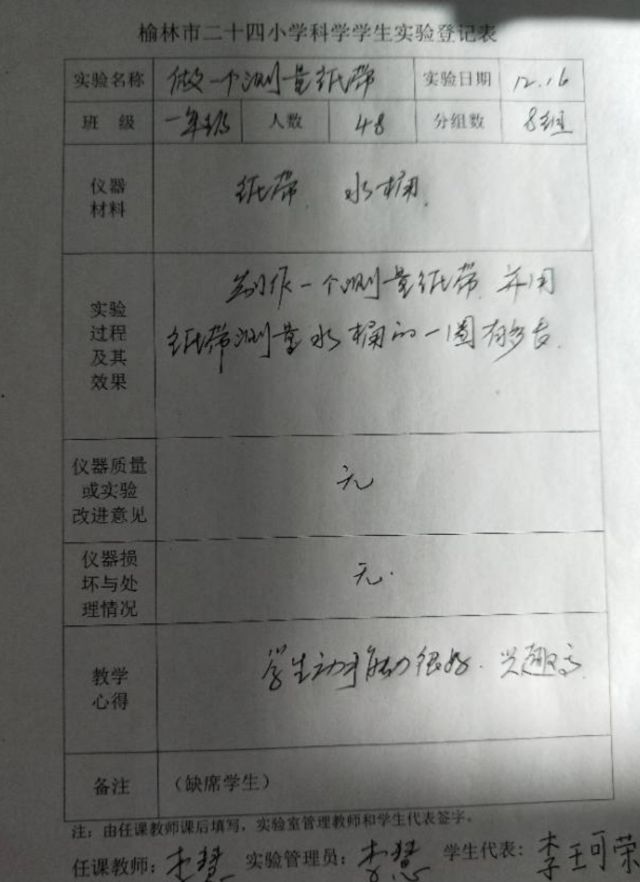 榆林市二十四小学科学学生实验登记表
实验名称 做一个测量纸带 实验日期 12.16
班 级 一年级 人数 48 分组数 8组
仪器
材料
纸带 水桶.
实验
过程
及其
效果
制作一个测量纸带 并用
纸带测量水桶的一圈有多长.
仪器质量
或实验
改进意见
无
仪器损
坏与处
理情况
无.
教学
心得
学生动手能力很好. 兴趣高
备注 （缺席学生）
注：由任课教师课后填写，实验室管理教师和学生代表签字。
任课教师：李慧 实验管理员：李慧 学生代表：李珏荣